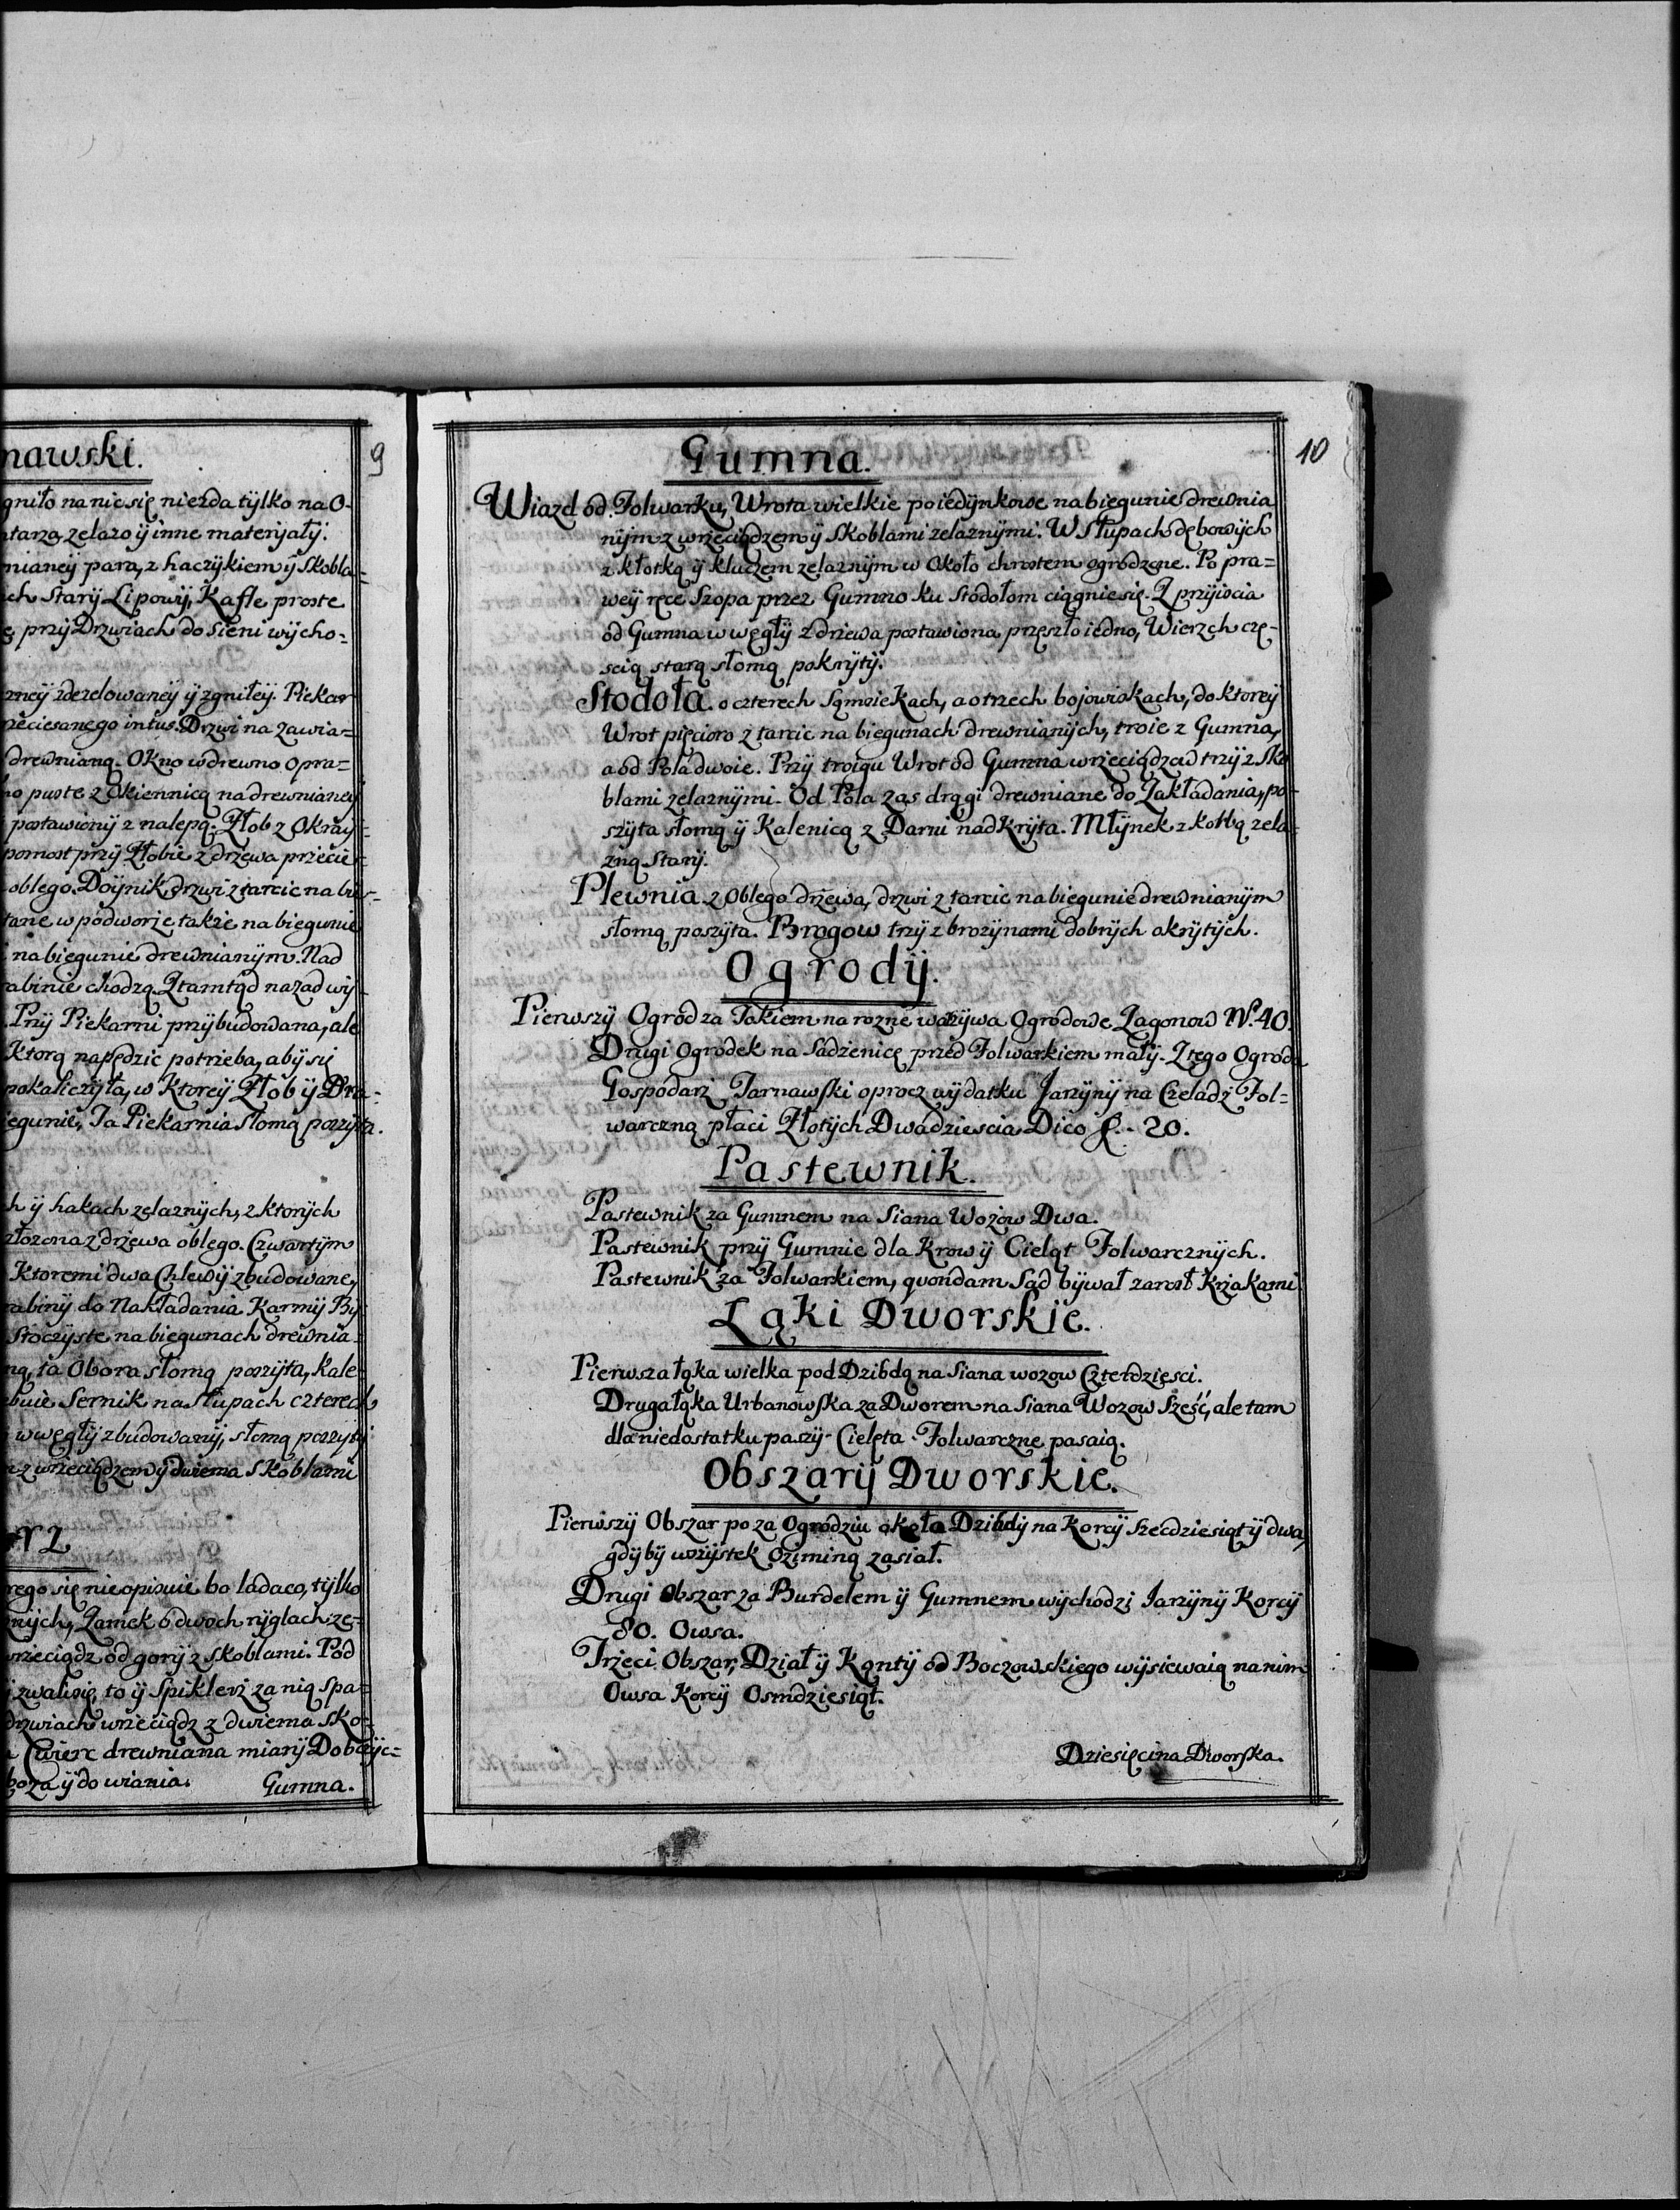 nawski.
9
gniło na nic się niezda tÿlko na O-
tarza, zelazo ÿ inne materyałÿ.
nianeÿ para, z haczÿkiem ÿ Skobla=
ch starÿ Lipowÿ, Kafle proste
ę przÿ Drzwiach do Sieni wÿcho=
zneÿ zdezelowaneÿ ÿ zgniłeÿ. Piekar
rzeciesanego intus. Drzwi na zawia=
drewnianą. Okno w drewno opra=
no puste z Okiennicą na drewnianeÿ
postawionÿ z nalepą. Złob z Okraÿ=
pomost przÿ Złobie z drzewa przecie=
oblego. Doÿnik, drzwi z tarcic na bie-
tane w podworze także na biegunie
na biegunie drewnianÿm. Nad
rabinie chodzą. Ztamtąd nazad wÿ-
Przÿ Piekarni przÿbudowana, ale
Ktorą napędzic potrzeba, abÿ się
pokaliczÿła, w Ktoreÿ Złob ÿ Dra=
iegunie, Ta Piekarnia słomą poszÿta.
h ÿ hakach zelaznÿch, z ktorÿch
złozona z drzewa oblego. Czwartÿm
Ktoremi dwa Chlewÿ zbudowane,
rabinÿ do Nakładania Karmÿ Bÿ-
Stoczÿste na biegunach drewnia=
ną, ta Obora słomą poszÿta, Kale-
buie Sernik na Słupach czterech
w węgłÿ zbudowanÿ, słomą poszÿtÿ:
z wrzeciądzem ÿ dwiema skoblami
rz
rego się nie opisuie bo ladaco, tÿlko
nÿch, Zamek o dwoch rÿglach ze=
wrzeciądz od gorÿ z skoblami. Pod
zwalisię, to ÿ Spiklerz za nią spa=
drzwiach wrzeciądz z dwiema sko-
Cwierc drewniana miarÿ Dobczÿc=
boza ÿ do wiania.
Gumna.
10
Gumna.
Wiazd od Folwarku, Wrota wielkie poiedÿnkowe na biegunie drewnia
nÿm z wrzeciądzem ÿ Skoblami zelaznÿmi. W Słupach dębowÿch
z kłotką ÿ kluczem zelaznÿm w Około chrostem ogrodzone. Po pra=
weÿ ręce Szopa przez Gumno ku Stodołom ciągnie się. Z przÿiscia
od Gumna w węgłÿ z drzewa postawiona przęszło iedno, Wierzch czę-
scią starą słomą pokrÿtÿ.
Stodoła. o czterech Sąmsiekach, a o trzech bojowiskach, do ktoreÿ
Wrot pięcioro z tarcic na biegunach drewnianÿch, troie z Gumna,
a od Pola dwoie. Przÿ troigu Wrot od Gumna wrzeciądzow trzÿ z Sko
blami zelaznÿmi. Od Pola zas drągi drewniane do Zakładania, po-
szÿta słomą ÿ Kalenicą z Darni nadkrÿta. Młÿnek z Kołbą zela=
zną starÿ.
Plewnia z Oblego drzewa, drzwi z tarcic na biegunie drewnianÿm
słomą poszÿta. Brogow trzÿ z brozÿnami dobrÿch okrÿtÿch.
Ogrodÿ.
Pierwszÿ Ogrod za Takiem na rozne warzÿwa Ogrodowe Zagonow No. 40.
Drugi Ogrodek na Sadzenicę przed Folwarkiem małÿ. Z tego Ogroda
Gospodarz Tarnawski oprocz wÿdatku Jarzÿnÿ na Czeladz Fol=
warczną płaci Złotÿch Dwadziescia Dico f. 20.
Pastewnik.
Pastewnik za Gumnem na Siana Wozow Dwa.
Pastewnik przÿ Gumnie dla Krow ÿ Cieląt Folwarcznÿch.
Pastewnik za Folwarkiem, quondam Sad bÿwał zarosł Krzakami.
Łąki Dworskie.
Pierwsza łąka wielka pod Dzibdą na Siana wozow Czterdziesci.
Druga łąka Urbanowska za Dworem na Siana Wozow Sześć, ale tam
dla niedostatku paszÿ Cielęta Folwarczne pasaią.
Obszarÿ Dworskie.
Pierwszÿ Obszar po za Ogrodziu około Dzibdÿ na Korcÿ szescdziesiąt ÿ dwa,
gdÿ bÿ wszÿstek Oziminą zasiał.
Drugi Obszar za Burdelem ÿ Gumnem wÿchodzi Jarzÿnÿ Korcÿ
80. Owsa.
Trzeci Obszar, Dział ÿ Kąntÿ od Boczowskiego wÿsiewaią na nim
Owsa Korcÿ Osmdziesiąt.
Dziesięcina Dworska.